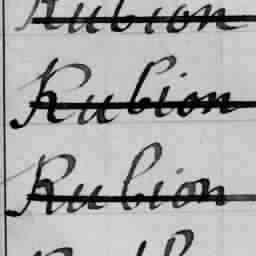 Rubion
Rubion
Rubion